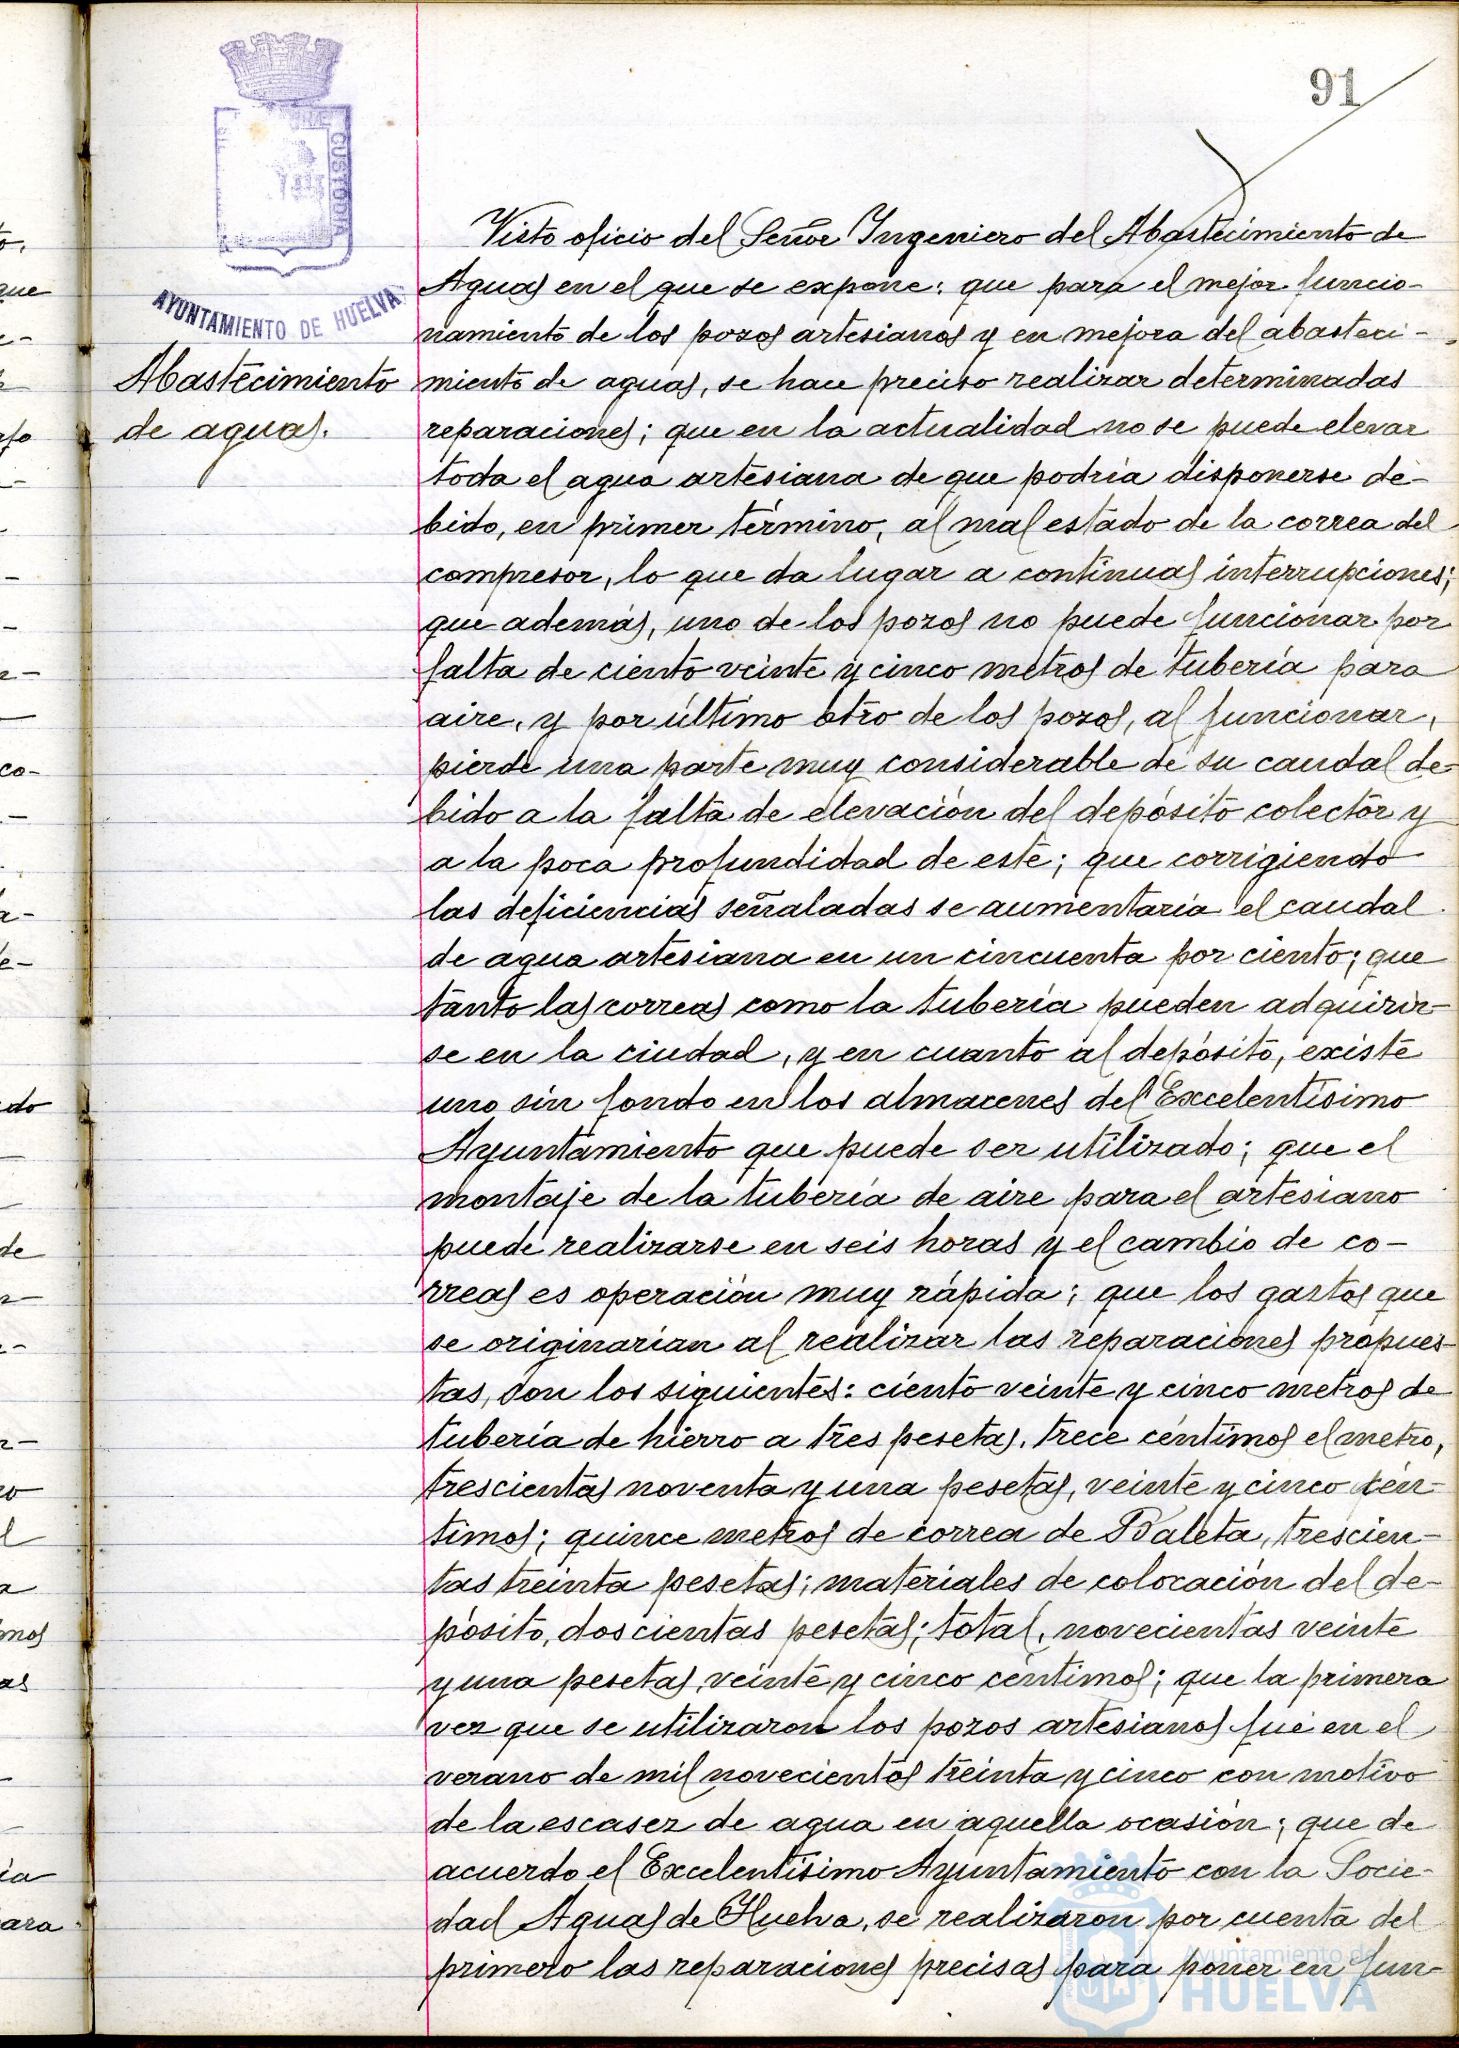 91
CUSTODIA
AYUNTAMIENTO DE HUELVA
Abastecimiento
de aguas.
Visto oficio del Señor Ingeniero del Abastecimiento de
Aguas en el que se expone: que para el mejor funcio-
namiento de los pozos artesianos y en mejora del abasteci-
miento de aguas, se hace preciso realizar determinadas
reparaciones; que en la actualidad no se puede elevar
toda el agua artesiana de que podría disponerse de-
bido, en primer término, al mal estado de la correa del
compresor, lo que da lugar a continuas interrupciones;
que además, uno de los pozos no puede funcionar por
falta de ciento veinte y cinco metros de tubería para
aire, y por último otro de los pozos, al funcionar,
pierde una parte muy considerable de su caudal de-
bido a la falta de elevación del depósito colector y
a la poca profundidad de este; que corrigiendo
las deficiencias señaladas se aumentaría el caudal
de agua artesiana en un cincuenta por ciento; que
tanto las correas como la tubería pueden adquirir-
se en la ciudad, y en cuanto al depósito, existe
uno sin fondo en los almacenes del Excelentísimo
Ayuntamiento que puede ser utilizado; que el
montaje de la tubería de aire para el artesiano
puede realizarse en seis horas y el cambio de co-
rreas es operación muy rápida; que los gastos que
se originarían al realizar las reparaciones propues-
tas, son los siguientes: ciento veinte y cinco metros de
tubería de hierro a tres pesetas, trece céntimos el metro,
trescientas noventa y una pesetas, veinte y cinco cén-
timos; quince metros de correa de Baleta, trescien-
tas treinta pesetas; materiales de colocación del de-
pósito, doscientas pesetas; total, novecientas veinte
y una pesetas, veinte y cinco céntimos; que la primera
vez que se utilizaron los pozos artesianos fué en el
verano de mil novecientos treinta y cinco con motivo
de la escasez de agua en aquella ocasión; que de
acuerdo el Excelentísimo Ayuntamiento con la Socie-
dad Aguas de Huelva, se realizaron por cuenta del
primero las reparaciones precisas para poner en fun-
Ayuntamiento de
HUELVA